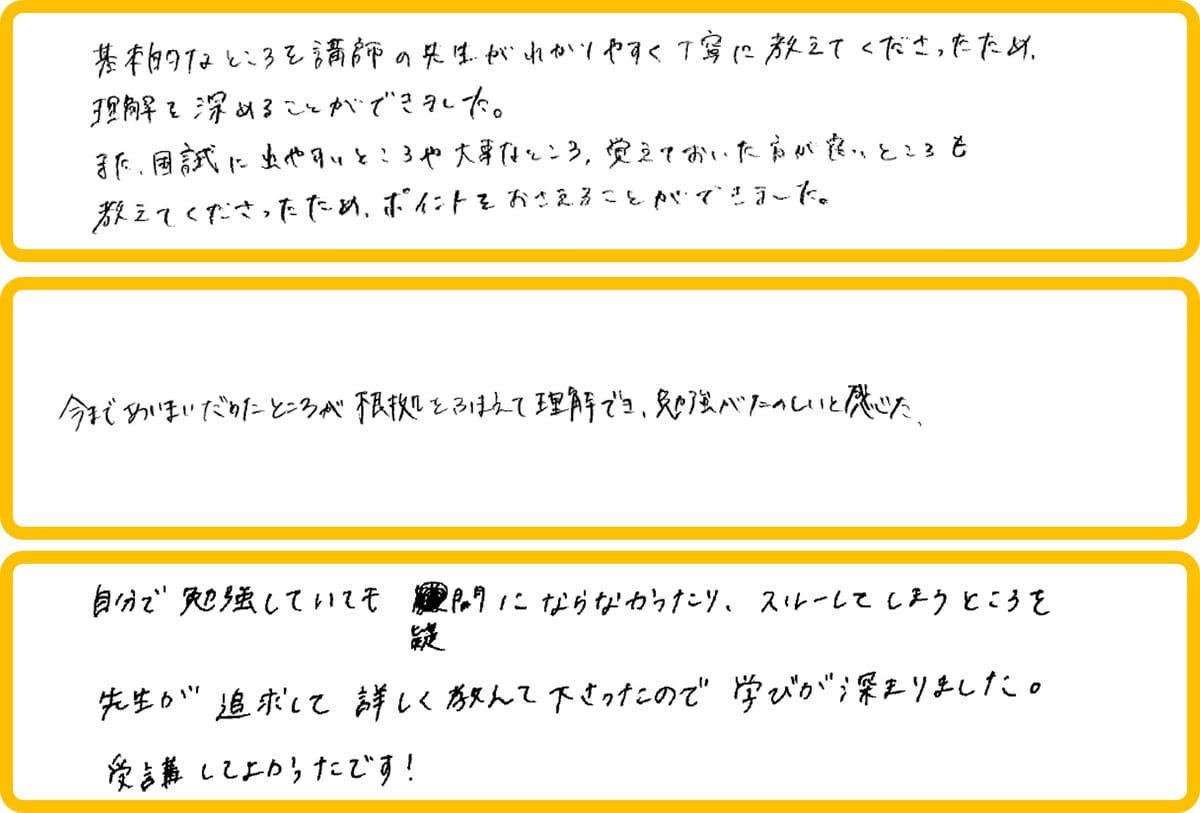 基本的なところを講師の先生がわかりやすく丁寧に教えてくださったため、
理解を深めることができました。
また、国試に出やすいところや大事なところ、覚えておいた方が良いところも
教えてくださったため、ポイントをおさえることができました。
今まであいまいだったところが根拠をふまえて理解でき、勉強がたのしいと感じた、
自分で勉強していても疑問にならなかったり、スルーしてしまうところを
先生が追求して詳しく教えて下さったので学びが深まりました。
受講してよかったです!